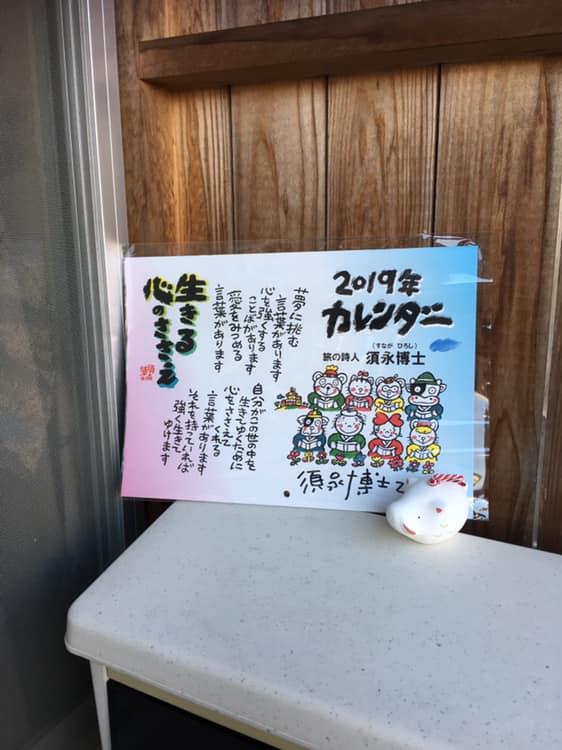 2019年
カレンダー
(すなが ひろし)
旅の詩人 須永博士
須永博士
夢に挑む
言葉があります
心を強くする
ことばがあります
愛をみつめる
言葉があります
自分がこの世の中を
生きてゆくために
心をささえて
くれる
言葉があります
それを持っていれば
強く生きて
ゆけます
生きる
心のささえ